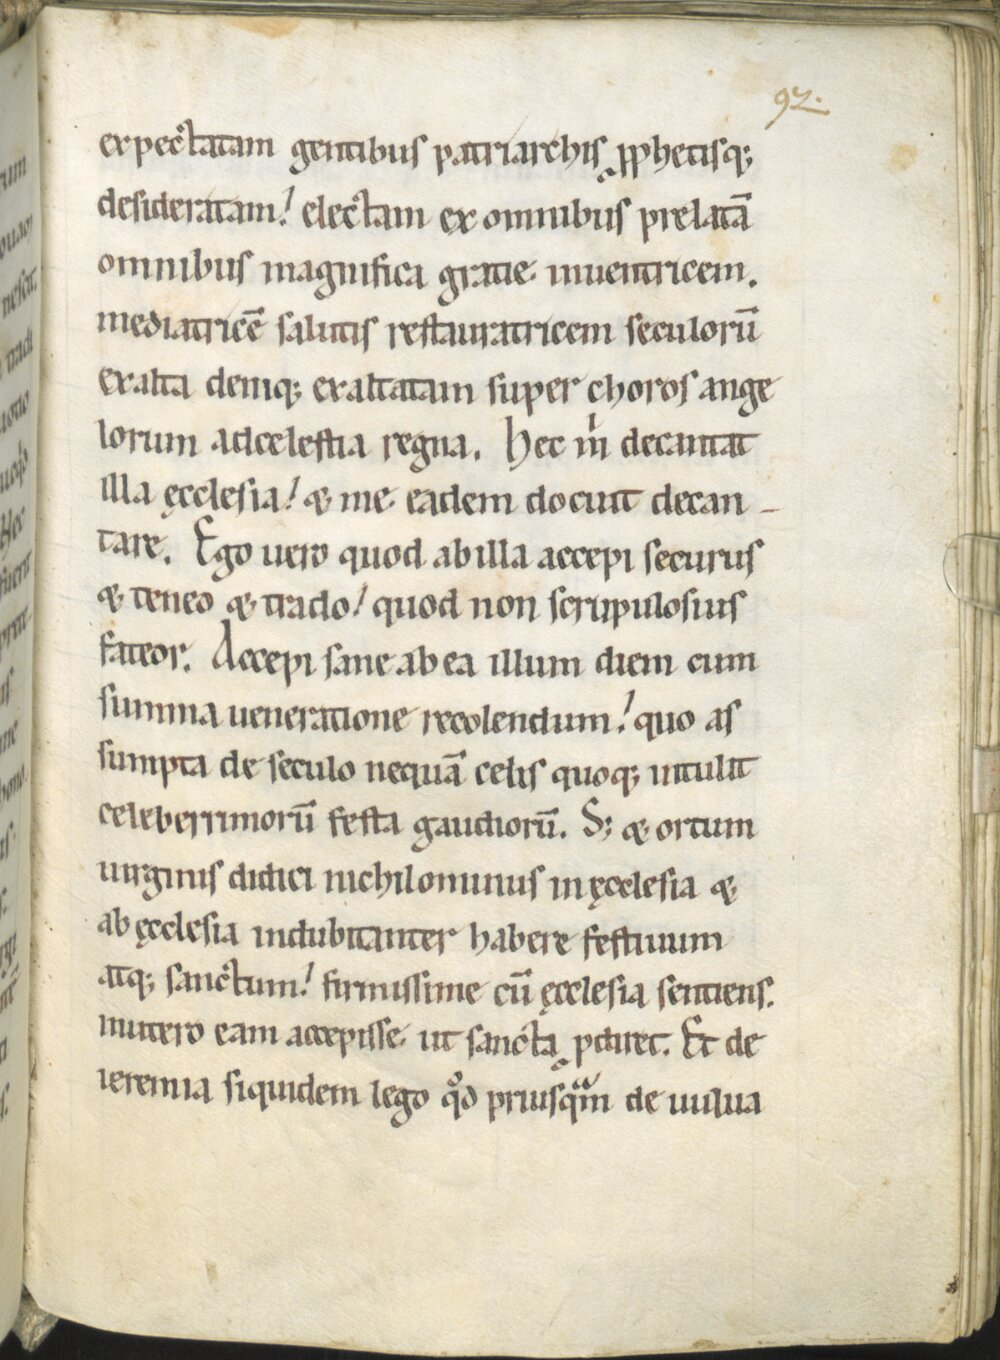 92.
expectatam gentibus patriarchis ꝓphetisq;
desideratam! electam ex omnibus prelatā
omnibus magnifica gratie inuentricem.
mediatricē salutis restauratricem seculorū
exalta deniq; exaltatam super choros ange
lorum adcelestia regna. Hec m̍ decantat
illa ęcclesia! & me eadem docuit decan-
tare. Ego uero quod ab illa accepi securus
& teneo & trado! quod non scrupulosius
fateor. Accepi sane ab ea illum diem cum
summa ueneratione recolendum! quo as
sumpta de seculo nequā celis quoq; intulit
celeberrimorū festa gaudiorū. S; & ortum
uirginis didici nichilominus in ęcclesia &
ab ęcclesia indubitanter habere festiuum
atq; sanctum! firmissime cū ęcclesia sentiens.
inutero eam accepisse ut sancta ꝓdiret. Et de
ieremia siquidem lego qđ priusquā de uulua